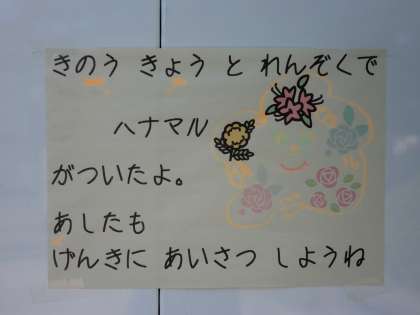 きのう きょう と れんぞくで
ハナマル
がついたよ。
あしたも
げんきに あいさつ しようね